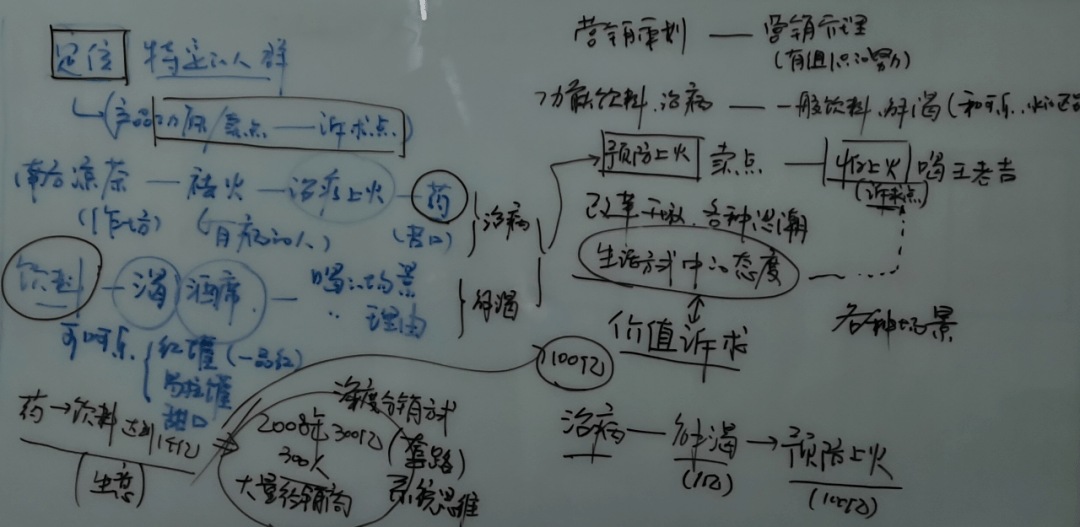 定位 特定的人群
(产品功能/卖点——诉求点)
南方凉茶——祛火——治疗上火——药
(有病的人)
治病
饮料——渴 酒席——喝的场景
〃 理由
解渴
可口可乐
红罐(一品红)
易拉罐
甜口
药→饮料 达到1个亿 ⇒
(生态)
深度分销方式
2008年300亿(套路)
300人 系统思维
大量经销商
营销策划——营销管理
功能饮料、治病——一般饮料、解渴(和可乐、水
预防上火 卖点——怕上火 喝王老吉
(诉求点)
各种思潮
生活方式中的态度
各种场景
价值诉求
100亿
治病——解渴→预防上火
(1亿)
(100亿)